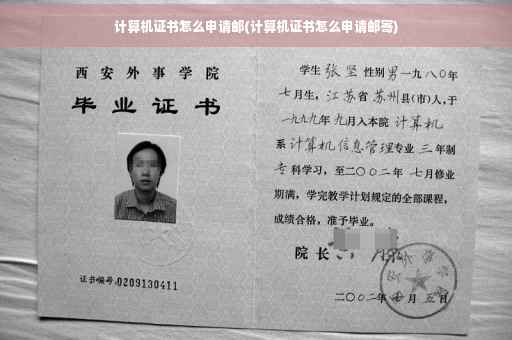 计算机证书怎么申请邮(计算机证书怎么申请邮寄)
西安外事学院
毕业证书
证书编号:0209130411
学生 张坚 性别 男 一九八〇年
七月生，江苏省 苏州 县(市)人，于
一九九九年 九月入本院 计算机
系 计算机信息管理 专业 三 年制
专 科学习，至二〇〇二年 七月修业
期满，学完教学计划规定的全部课程，
成绩合格，准予毕业。
院长
二〇〇二年 月 五日